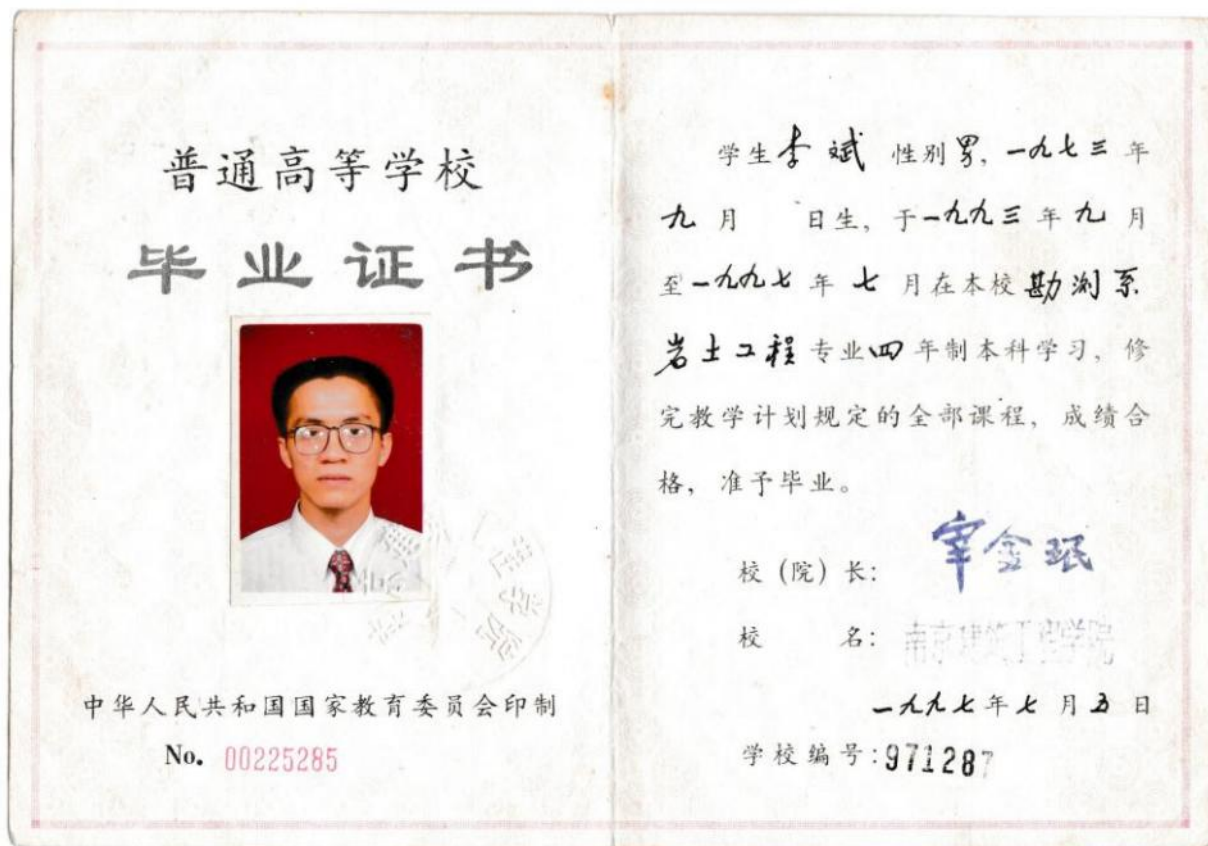 普通高等学校
毕业证书
中华人民共和国国家教育委员会印制
No. 00225285
学生李斌 性别男,一九七三年
九月 日生,于一九九三年九月
至一九九七年七月在本校勘测系
岩土工程专业四年制本科学习,修
完教学计划规定的全部课程,成绩合
格,准予毕业。
校(院)长:宰金珉
校 名:南京建筑工程学院
一九九七年七月五日
学校编号:971287